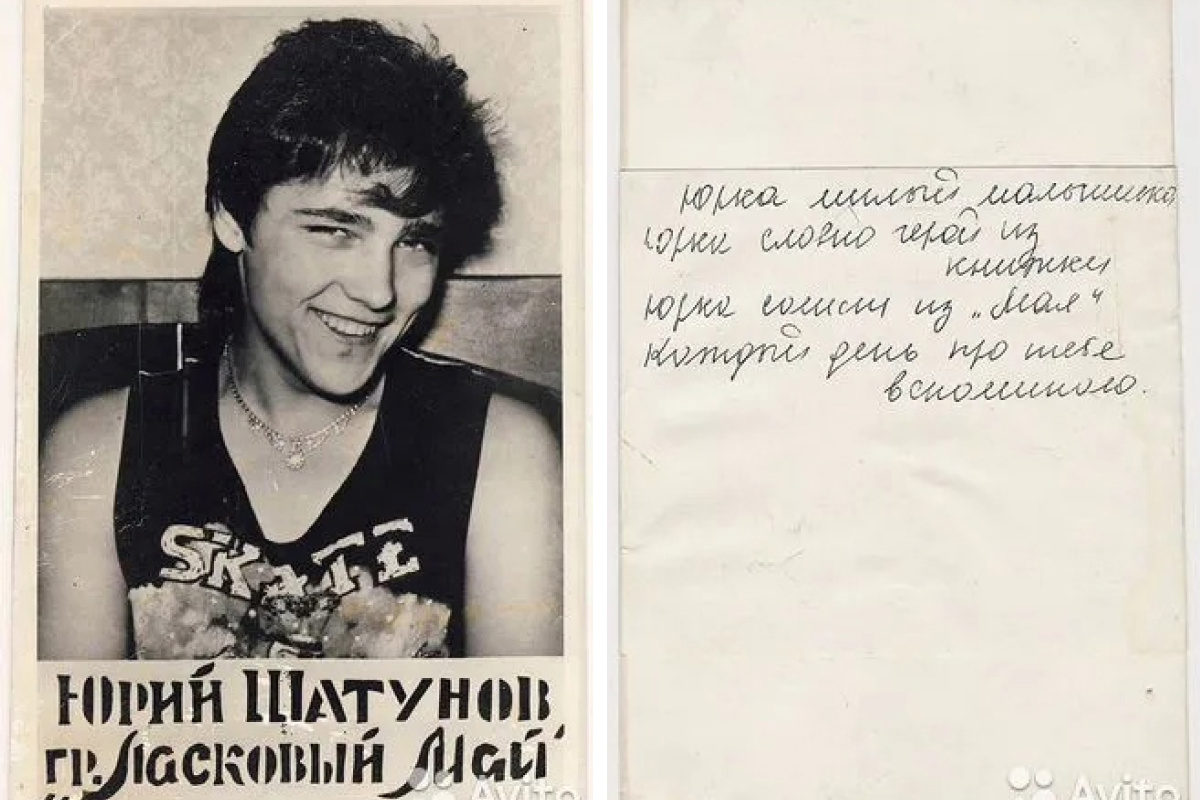 SKATE
ЮРИЙ ШАТУНОВ,
гр. "Ласковый Май"
Avito
Юрка милый малышка
Юрка словно герой из
книжки
Юрка солист из „Мая“
Каждый день про тебе
вспоминаю.
Avito